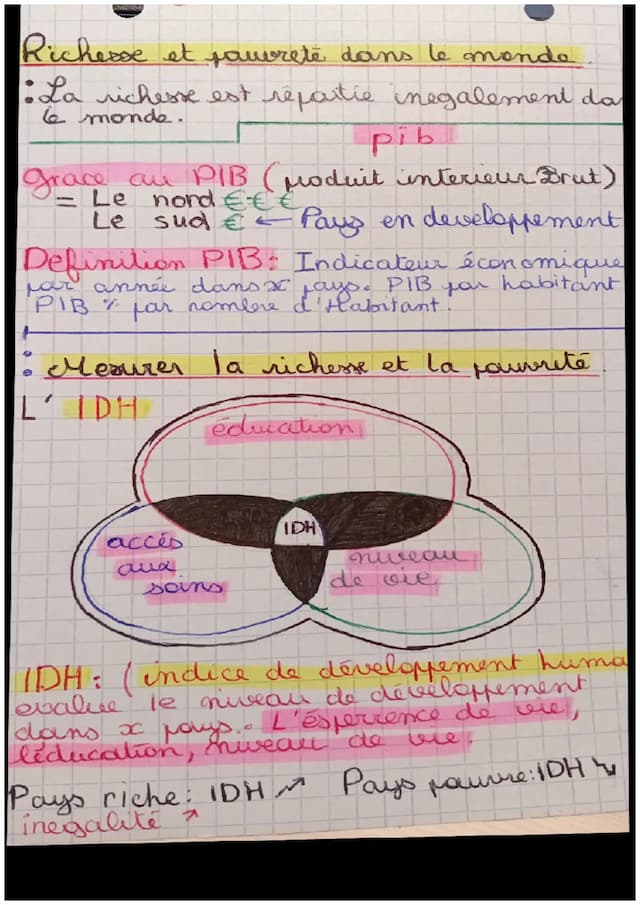 Richesse et pauvreté dans le monde
: La richesse est répartie inegalement da
le monde.
pib
Grace au PIB (produit interieur Brut)
= Le nord €€€
Le sud € ← Pays en developpement
Definition PIB: Indicateur économique
par année dans x pays. PIB par habitant
PIB % par nombre d'Habitant.
: Mesurer la richesse et la pauvreté
L' IDH
éducation
IDH
accés
aux
soins
niveau
de vie
IDH: (indice de développement huma
evalue le niveau de développement
dans x pays. L'ésperence de vie,
l'éducation, niveau de vie.
Pays riche: IDH ↗ Pays pauvre: IDH ↘
inegalité ↗